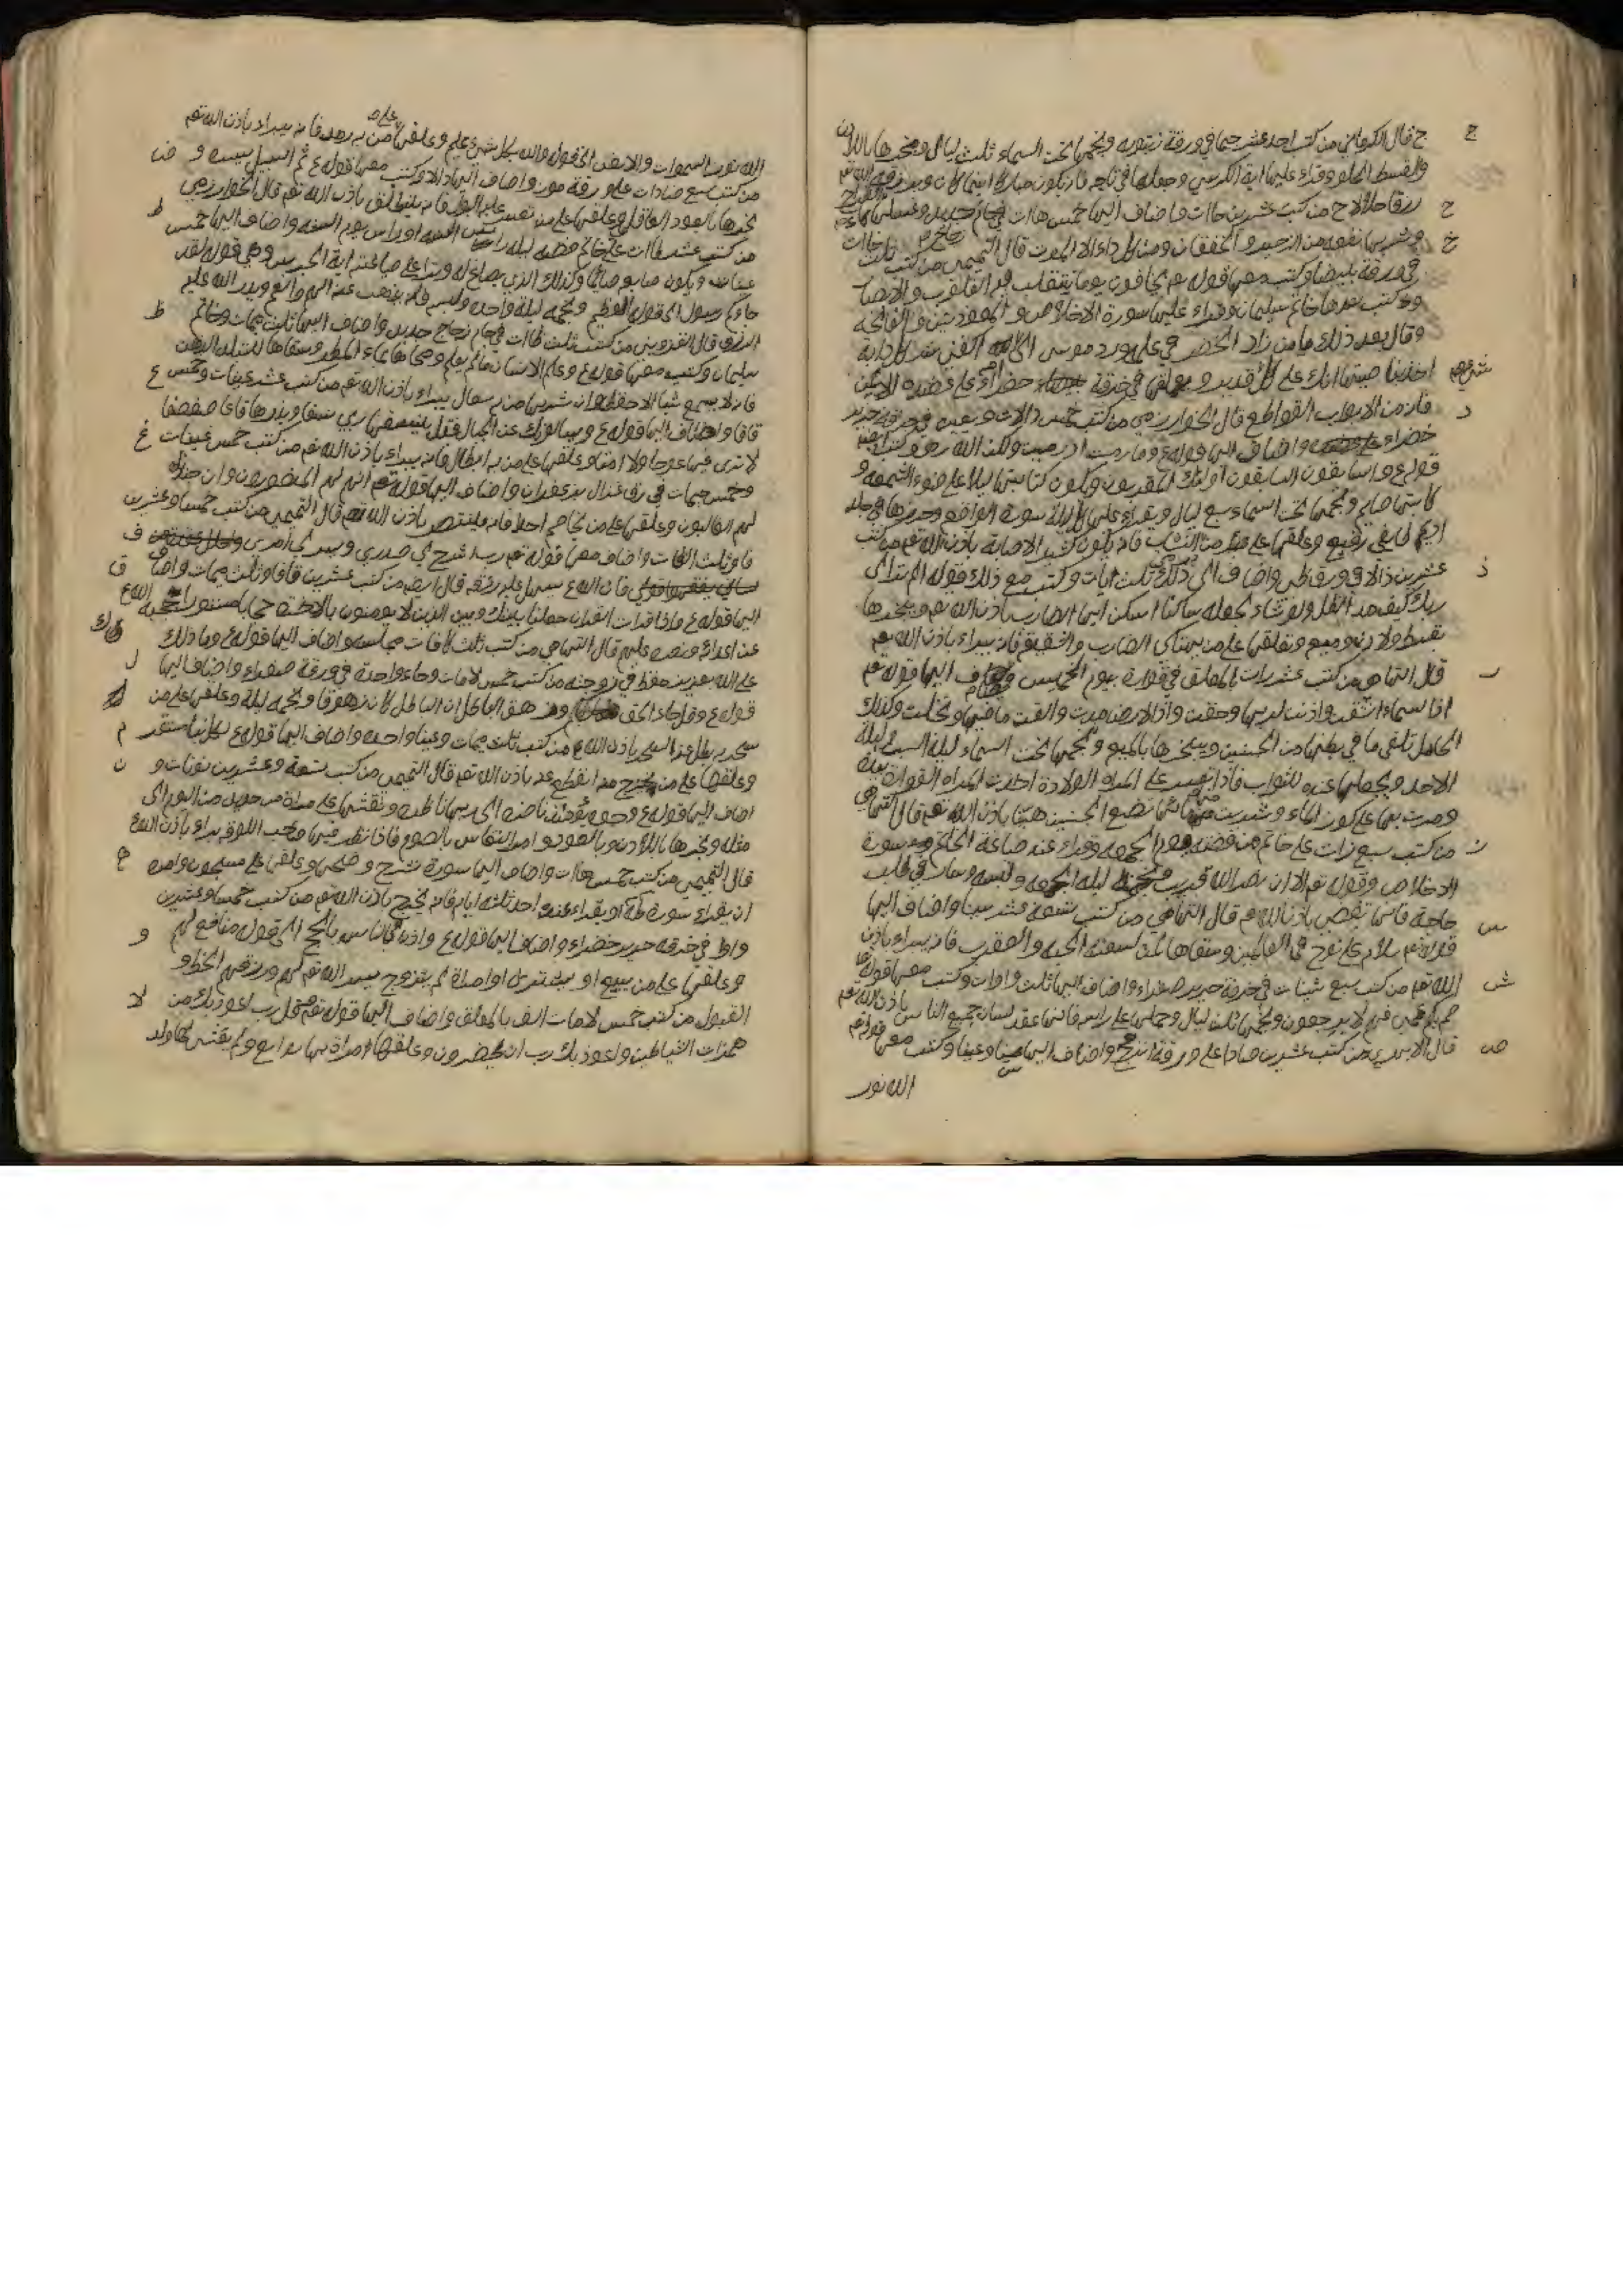 ج قال الكرماني من كتب احد عشر جيما في ورقة زيتونه ونجمها تحت السماء ثلث ليال وبخرها باللادن
والقسط الحلو وقراء عليها اية الكرسي وجعلها في تاجه فانه يكون مباركا اينما كان ويرزقه الله تعم
ح رزقا حلالا من كتب عشرين حاات واضاف اليها خمس هاات في جام جديد
خ وشربها نفعه من الزحير والخفقان ومن كل داء الا الموت قال التميمي من كتب ثلث خاات
في ورقة بيضا وكتب معها قوله تعم يخافون يوما تتقلب فيه القلوب والابصار
وكتب بعدها خاتم سليمان وقراء عليها سورة الاخلاص والمعوذتين والفاتحة
وقال بعد ذلك يا من زاد الخضر في علمه ورد موسى الى امه اكفني شر كل دابة
انت اخذ بناصيتها انك على كل شيء قدير ويعلقها في خرقة خضراء على عضده الايمن
د فانه من الابواب القواطع قال الخوارزمي من كتب خمس دالات في خرقة حرير
خضراء واضاف اليها قوله ع وما رميت اذ رميت ولكن الله رمى وكتب
قوله ع والسابقون السابقون اولئك المقربون ويكون كتابتها ليلا على ضوء الشمعه و
كاتبها صايم ونجمها تحت السماء سبع ليال ويقراء عليها كل ليلة سورة الواقعه وحرزها في جلد
اديم طايفي رفيع وعلقها على من النشاب فانه يكون كثير الاصابة باذن الله تعم من كتب
ذ عشرين ذالا في ورقة واضاف الى ذلك ثلث ايات وكتب مع ذلك قوله الم تر الى
ربك كيف مد الظل ولو شاء لجعله ساكنا اسكن ايها الضارب باذن الله تعم وبخرها
بقسط ولادن وميعه ويعلقها على من يشتكي الضارب والشقيقه فانه يبراء باذن الله تعم
ر قال التهامي من كتب عشر رات في قوارة يوم الخميس واضاف اليها قوله تعم
اذا السماء انشقت واذنت لربها وحقت واذا الارض مدت والقت ما فيها وتخلت وكذلك
الحامل تلقي ما في بطنها من الجنين ويبخرها بالميعه ونجمها تحت السماء ليلة السبت ليلة
الاحد ويجعلها عنده للثواب فاذا تعسر على المراه الولادة اخذت المراه القوارة
ومرت بها على كوز الماء وشربت منها فانها تضع الجنين هينا باذن الله تعم قال التهامي
ز من كتب سبع زات على خاتم من فضه يوم الجمعه وقراء عند صياغة الخاتم سورة
الاخلاص وقوله تعم الا ان نصر الله قريب ونجمه ليلة الجمعه ولبسه وسار في طلب
حاجة فانها تقضى باذن الله تعم قال التهامي من كتب تسعة عشر سينا واضاف اليها
س قوله تعم سلام على نوح في العالمين وسقاها لمن لسعته الحيه والعقرب فانه يبراء باذن
ش الله تعم من كتب سبع شينات في خرقة حرير صفراء واضاف اليها ثلث واوات وكتب معها قوله تع
صم بكم عمي فهم لا يرجعون ونجمها ثلث ليال وحملها على راسه فانها عقد لسان جميع الناس باذن الله تعم
ص قال من كتب عشرين صادا على ورقة اترنج واضاف اليها سينا وعينا وكتب معها قوله تعم
الله نور
الله نور السموات والارض الى قوله والله بكل شيء عليم وعلقها على من به رمد فانه يبراء باذن الله تعم
ض من كتب سبع ضادات على ورقة موز واضاف اليها دالا وكتب معها قوله ع ثم السبيل يسره و
بخرها بالعود وعلقها على من تعسر عليه البول فانه ينطلق باذن الله تعم قال الخوارزمي
ط من كتب عشر طاات على خاتم فضه ليلة راس السنه او راس يوم السنه واضاف اليها خمس
عينات ويكون صايم وكذلك الذي يصاغ له ويقراء على صياغته اية الحرس وهي قوله لقد
جاءكم رسول الى قوله العظيم ونجمه ليلة واحده ولبسه فانه يذهب عنه الهم والغم ويدر الله عليه
ظ الرزق قال القزويني من كتب ثلث ظاات في جام زجاج جديد واضاف اليها ثلث جيمات وخاتم
سليمان وكتب معها قوله ع وعلم الانسان ما لم يعلم ومحاها بماء المطر وسقاها للبليد الذهن
ع فانه لا يسمع شيا الا حفظه وان شربها من به سعال يبراء باذن الله تعم من كتب عشر عينات وخمس
قافا واضاف اليها قوله ع ويسالونك عن الجبال فقل ينسفها ربي نسفا فيذرها قاعا صفصفا
غ لا ترى فيها عوجا ولا امتا وعلقها على من به الطحال فانه يبراء باذن الله تعم من كتب خمس غينات
وخمس جيمات في رق غزال بزعفران واضاف اليها قوله تعم انهم لهم المنصورون وان جندنا
لهم الغالبون وعلقها على من يخاصم احدا فانه ينتصر باذن الله تعم قال التميمي من كتب خمسا وعشرين
ف فا وثلث الفات واضاف معها قوله تعم رب اشرح لي صدري ويسر لي امري واحلل عقدة من
ق لساني يفقهوا قولي فان الله ع يسهل عليه رزقه قال ايضه من كتب عشرين قافا وثلث جيمات واضاف
اليها قوله ع واذا قرات القران جعلنا بينك وبين الذين لا يومنون بالاخرة حجابا مستورا حجبه الله ع
ك عن اعدائه ونصره عليهم قال التهامي من كتب ثلث كافات واضاف اليها قوله ع وما ذلك
ل على الله بعزيز حفظ في زوجته من كتب خمس لامات وحاء واحدة في ورقة صفراء واضاف اليها
قوله ع وقل جاء الحق وزهق الباطل ان الباطل كان زهوقا ونجمه ليلة وعلقها على من
م سحر يبطل عنه السحر باذن الله ع من كتب ثلث جيمات وعينا واحده واضاف اليها قوله ع لكل نبا مستقر
ن وعلقها على من انقطع عنه باذن الله تعم قال التميمي من كتب تسعة وعشرين نونات و
اضاف اليها قوله ع وجوه يومئذ ناضره الى ربها ناظره ونقشها على مراة من
وبخرها باللادن وبالعود فاذا نظر فيها صاحب اللقوه براء باذن الله ع
ه قال التميمي من كتب خمس هاات واضاف اليها سورة نشرح وضحى وعلقها على مسجون وامره
ان يقراء سورة طه او يقراء عنده احد ثلثه ايام فانه يخرج باذن الله تعم من كتب خمسا وعشرين
و واو في خرقه حرير خضراء واضاف اليها قوله ع واذن في الناس بالحج الى قوله منافع لهم
وعلقها على من يبيع او يشتري او امراة لم يتزوج يسر الله تعم لهم ورزقهم الحظ و
لا القبول من كتب خمس لامات الف واضاف اليها قوله تعم قل رب اعوذ بك من
همزات الشياطين واعوذ بك رب ان يحضرون وعلقها امراة